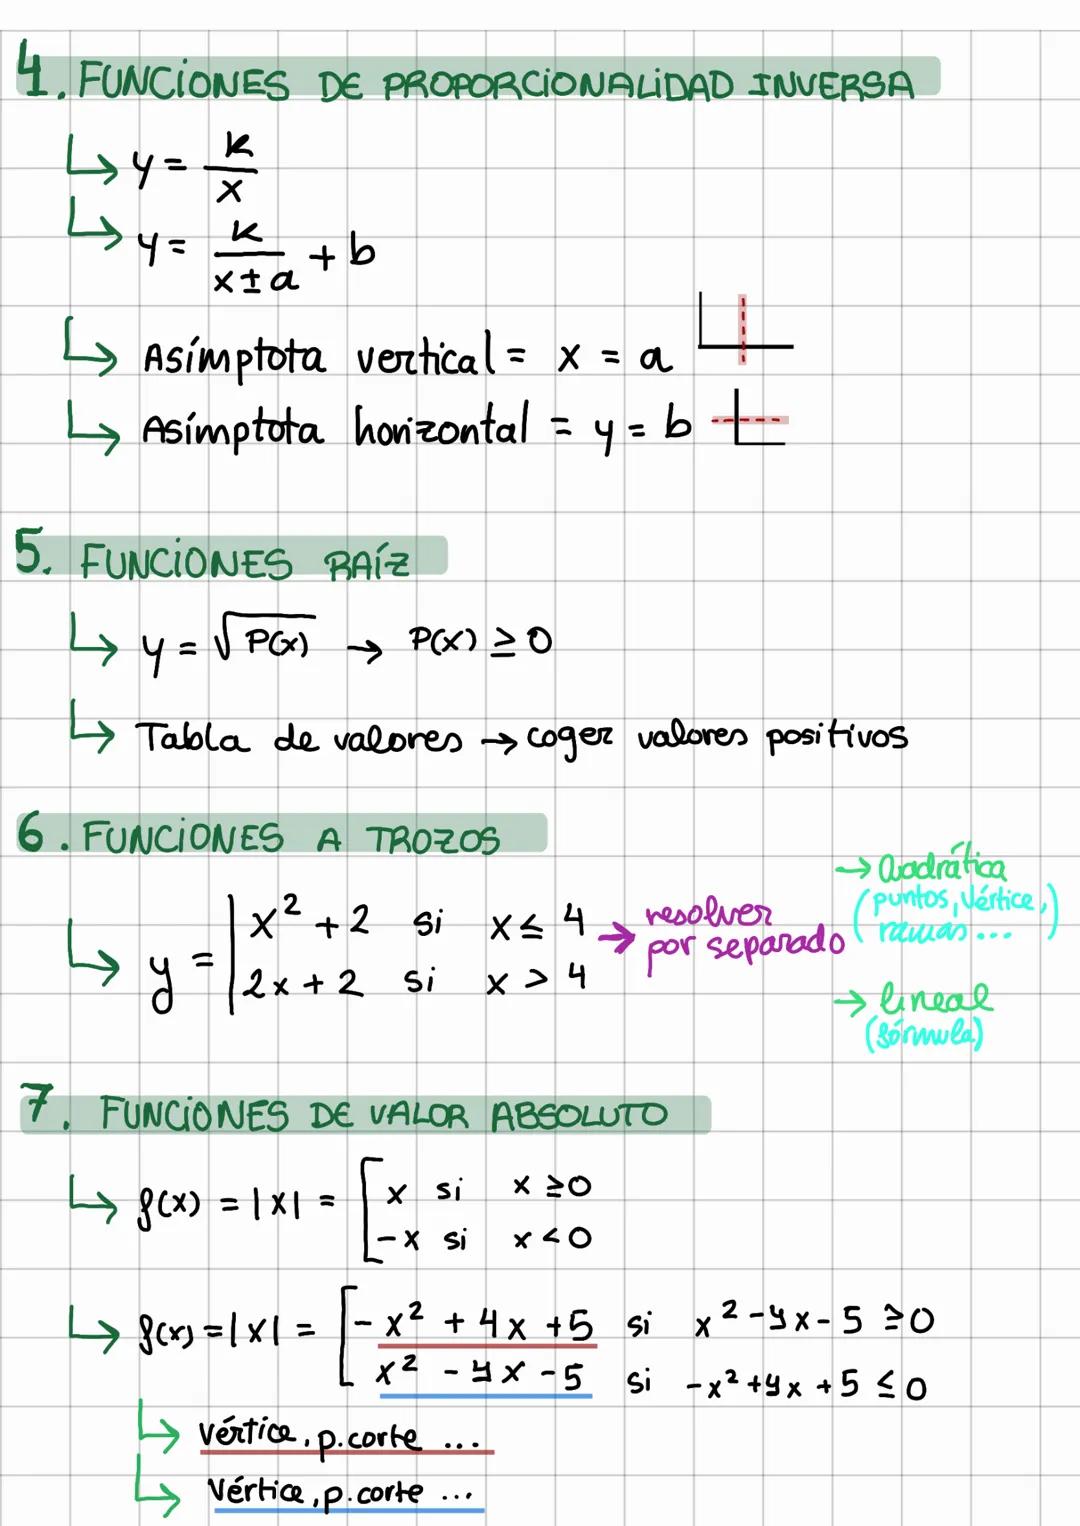 4. FUNCIONES DE PROPORCIONALIDAD INVERSA
↳ y = k/x
↳ y = k/(x ± a) + b
↳ Asímptota vertical = x = a
↳ Asímptota horizontal = y = b
5. FUNCIONES RAÍZ
↳ y = √P(x) → P(x) ≥ 0
↳ Tabla de valores → coger valores positivos
6. FUNCIONES A TROZOS
↳ y = | x² + 2 si x ≤ 4
| 2x + 2 si x > 4
→ resolver
por separado
→ Cuadrática
(puntos, vértice,
ramas ...)
→ lineal
(fórmula)
7. FUNCIONES DE VALOR ABSOLUTO
↳ f(x) = |x| = [ x si x ≥ 0
-x si x < 0
↳ f(x) = |x| = [ -x² + 4x + 5 si x² - 4x - 5 ≥ 0
x² - 4x - 5 si -x² + 4x + 5 ≤ 0
↳ vértice, p. corte ...
↳ vértice, p. corte ...